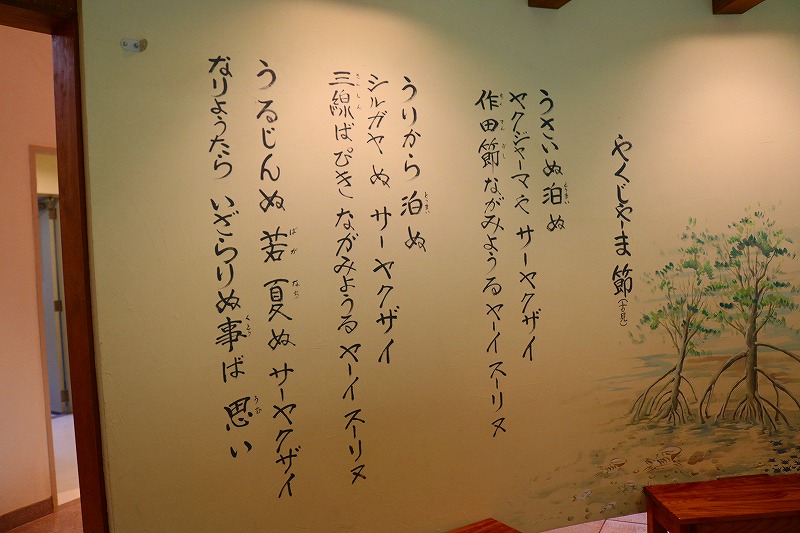 やくじゃーま節(古見)
うさいぬ泊ぬ
ヤクジャーマヤ サーヤクザイ
作田節ながみようるヤーイスーリヌ
うりから泊ぬ
シルガヤぬ サーヤクザイ
三線ばぴきながみようるヤーイスーリヌ
うるじんぬ若夏ぬサーヤクザイ
なりようたら いざらりぬ事ば思い